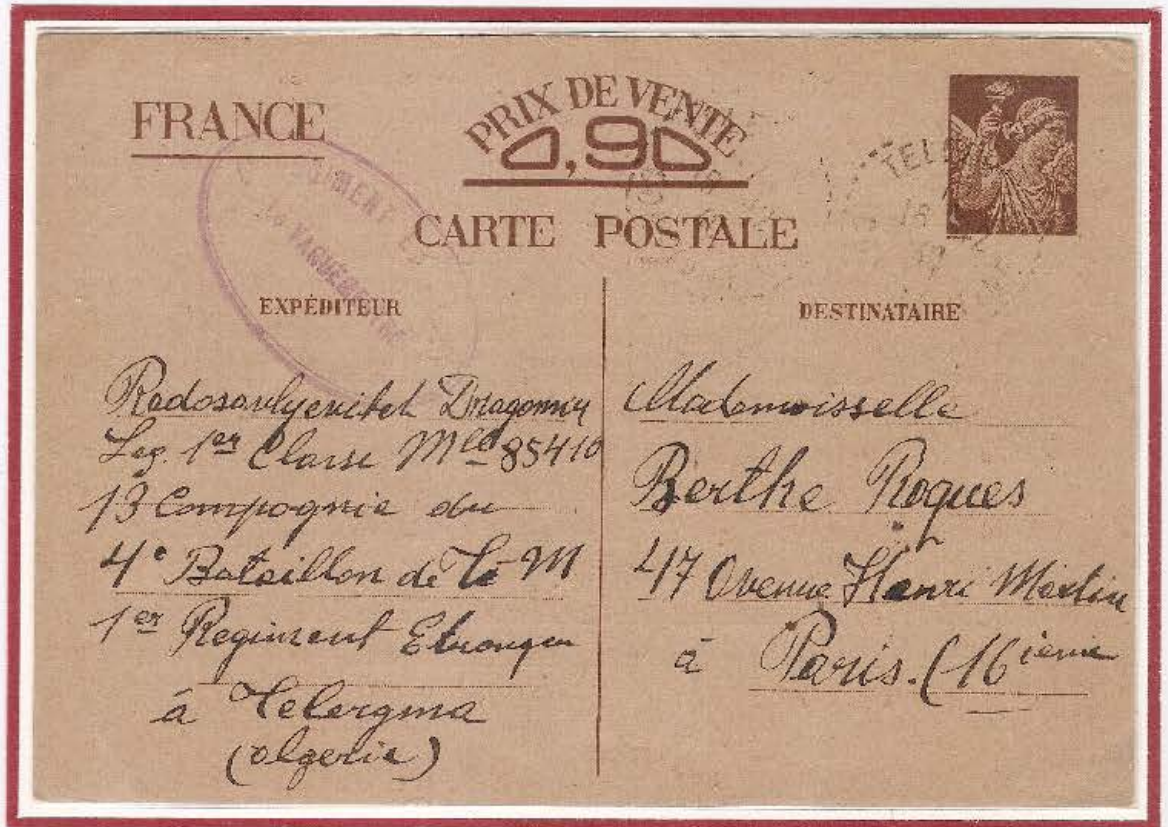 FRANCE
PRIX DE VENTE
0,90
CARTE POSTALE
LE VAGUEMESTRE
EXPÉDITEUR
Radosavlyevitch Dragomir
Leg. 1er Classe Mle 85410
13 Compagnie du
4e Bataillon de M
1er Regiment Etranger
à Telergma
(Algerie)
DESTINATAIRE
Mademoisselle
Berthe Roques
47 Avenue Henri Martin
à Paris. (16ième